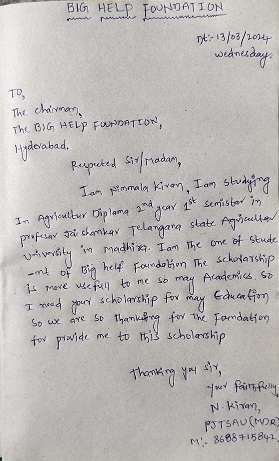 BIG HELP FOUNDATION
Dt:- 13/03/2024
wednesday.
To,
The chairman,
The BIG HELP FOUNDATION,
Hyderabad.
Respected Sir/Madam,
Iam pimmala Kiran, Iam studying
In Agricultur Diplama 2nd year 1st semistar in
profesar Jai shankar Telangana state Agricultur
University in Madhira. Iam The one of stude
-nt of Big help Foundation The scholarship
is more usefull to me so may Academics. So
I need your scholarship for may Education
So we are so Thanking for The Foundation
for provide me to this scholarship
Thanking you sir,
your faithfully,
N. Kiran,
PJTSAU(MDR)
M:- 8688715842,